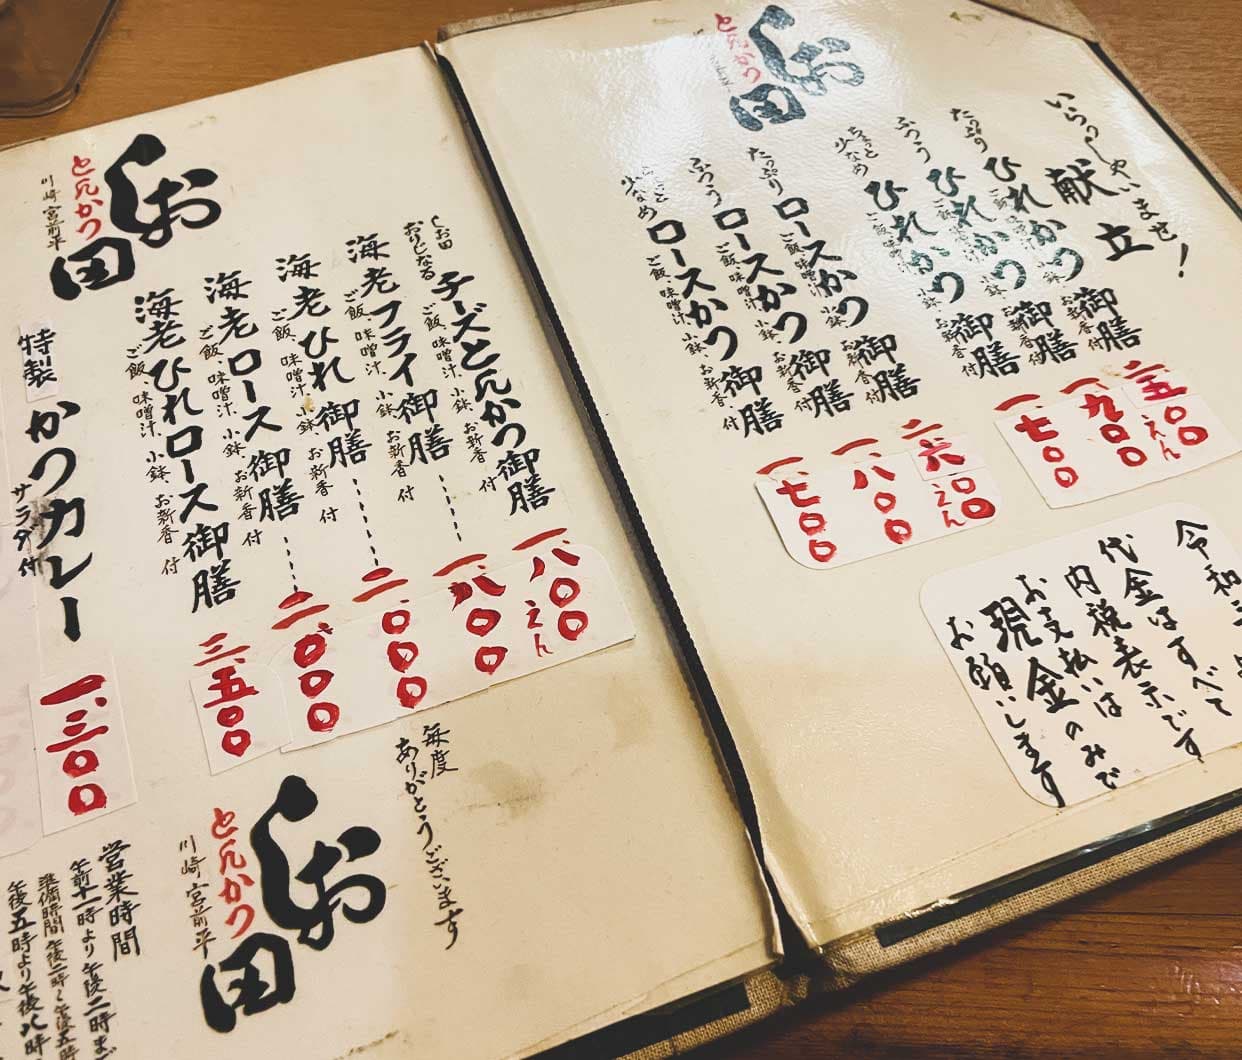 いらっしゃいませ!
献立
たっぷり ひれかつ御膳 二、五〇〇えん
ご飯、味噌汁、小鉢、お新香付
ふつう ひれかつ御膳 一、九〇〇
ご飯、味噌汁、小鉢、お新香付
ちょっと少なめ ひれかつ御膳 一、七〇〇
ご飯、味噌汁、小鉢、お新香付
たっぷり ロースかつ御膳 二、六〇〇えん
ご飯、味噌汁、小鉢、お新香付
ふつう ロースかつ御膳 一、八〇〇
ご飯、味噌汁、小鉢、お新香付
少なめ ロースかつ御膳 一、七〇〇
ご飯、味噌汁、小鉢、お新香付
とんかつ
しお田
令和三
代金はすべて
内税表示です
お支払いは
現金のみで
お願いします
しお田
おりじなる
チーズとんかつ御膳 一、八〇〇えん
ご飯、味噌汁、小鉢、お新香付
海老フライ御膳 一、八〇〇
ご飯、味噌汁、小鉢、お新香付
海老ひれ御膳 二、〇〇〇
ご飯、味噌汁、小鉢、お新香付
海老ロース御膳 二、〇〇〇
ご飯、味噌汁、小鉢、お新香付
海老ひれロース御膳 三、五〇〇
ご飯、味噌汁、小鉢、お新香付
しお田
とんかつ
川崎 宮前平
特製 かつカレー 一、三〇〇
サラダ付
毎度
ありがとうございます
しお田
とんかつ
川崎 宮前平
営業時間
午前十一時より午後二時まで
準備時間 午後二時〜午後五時
午後五時より午後八時